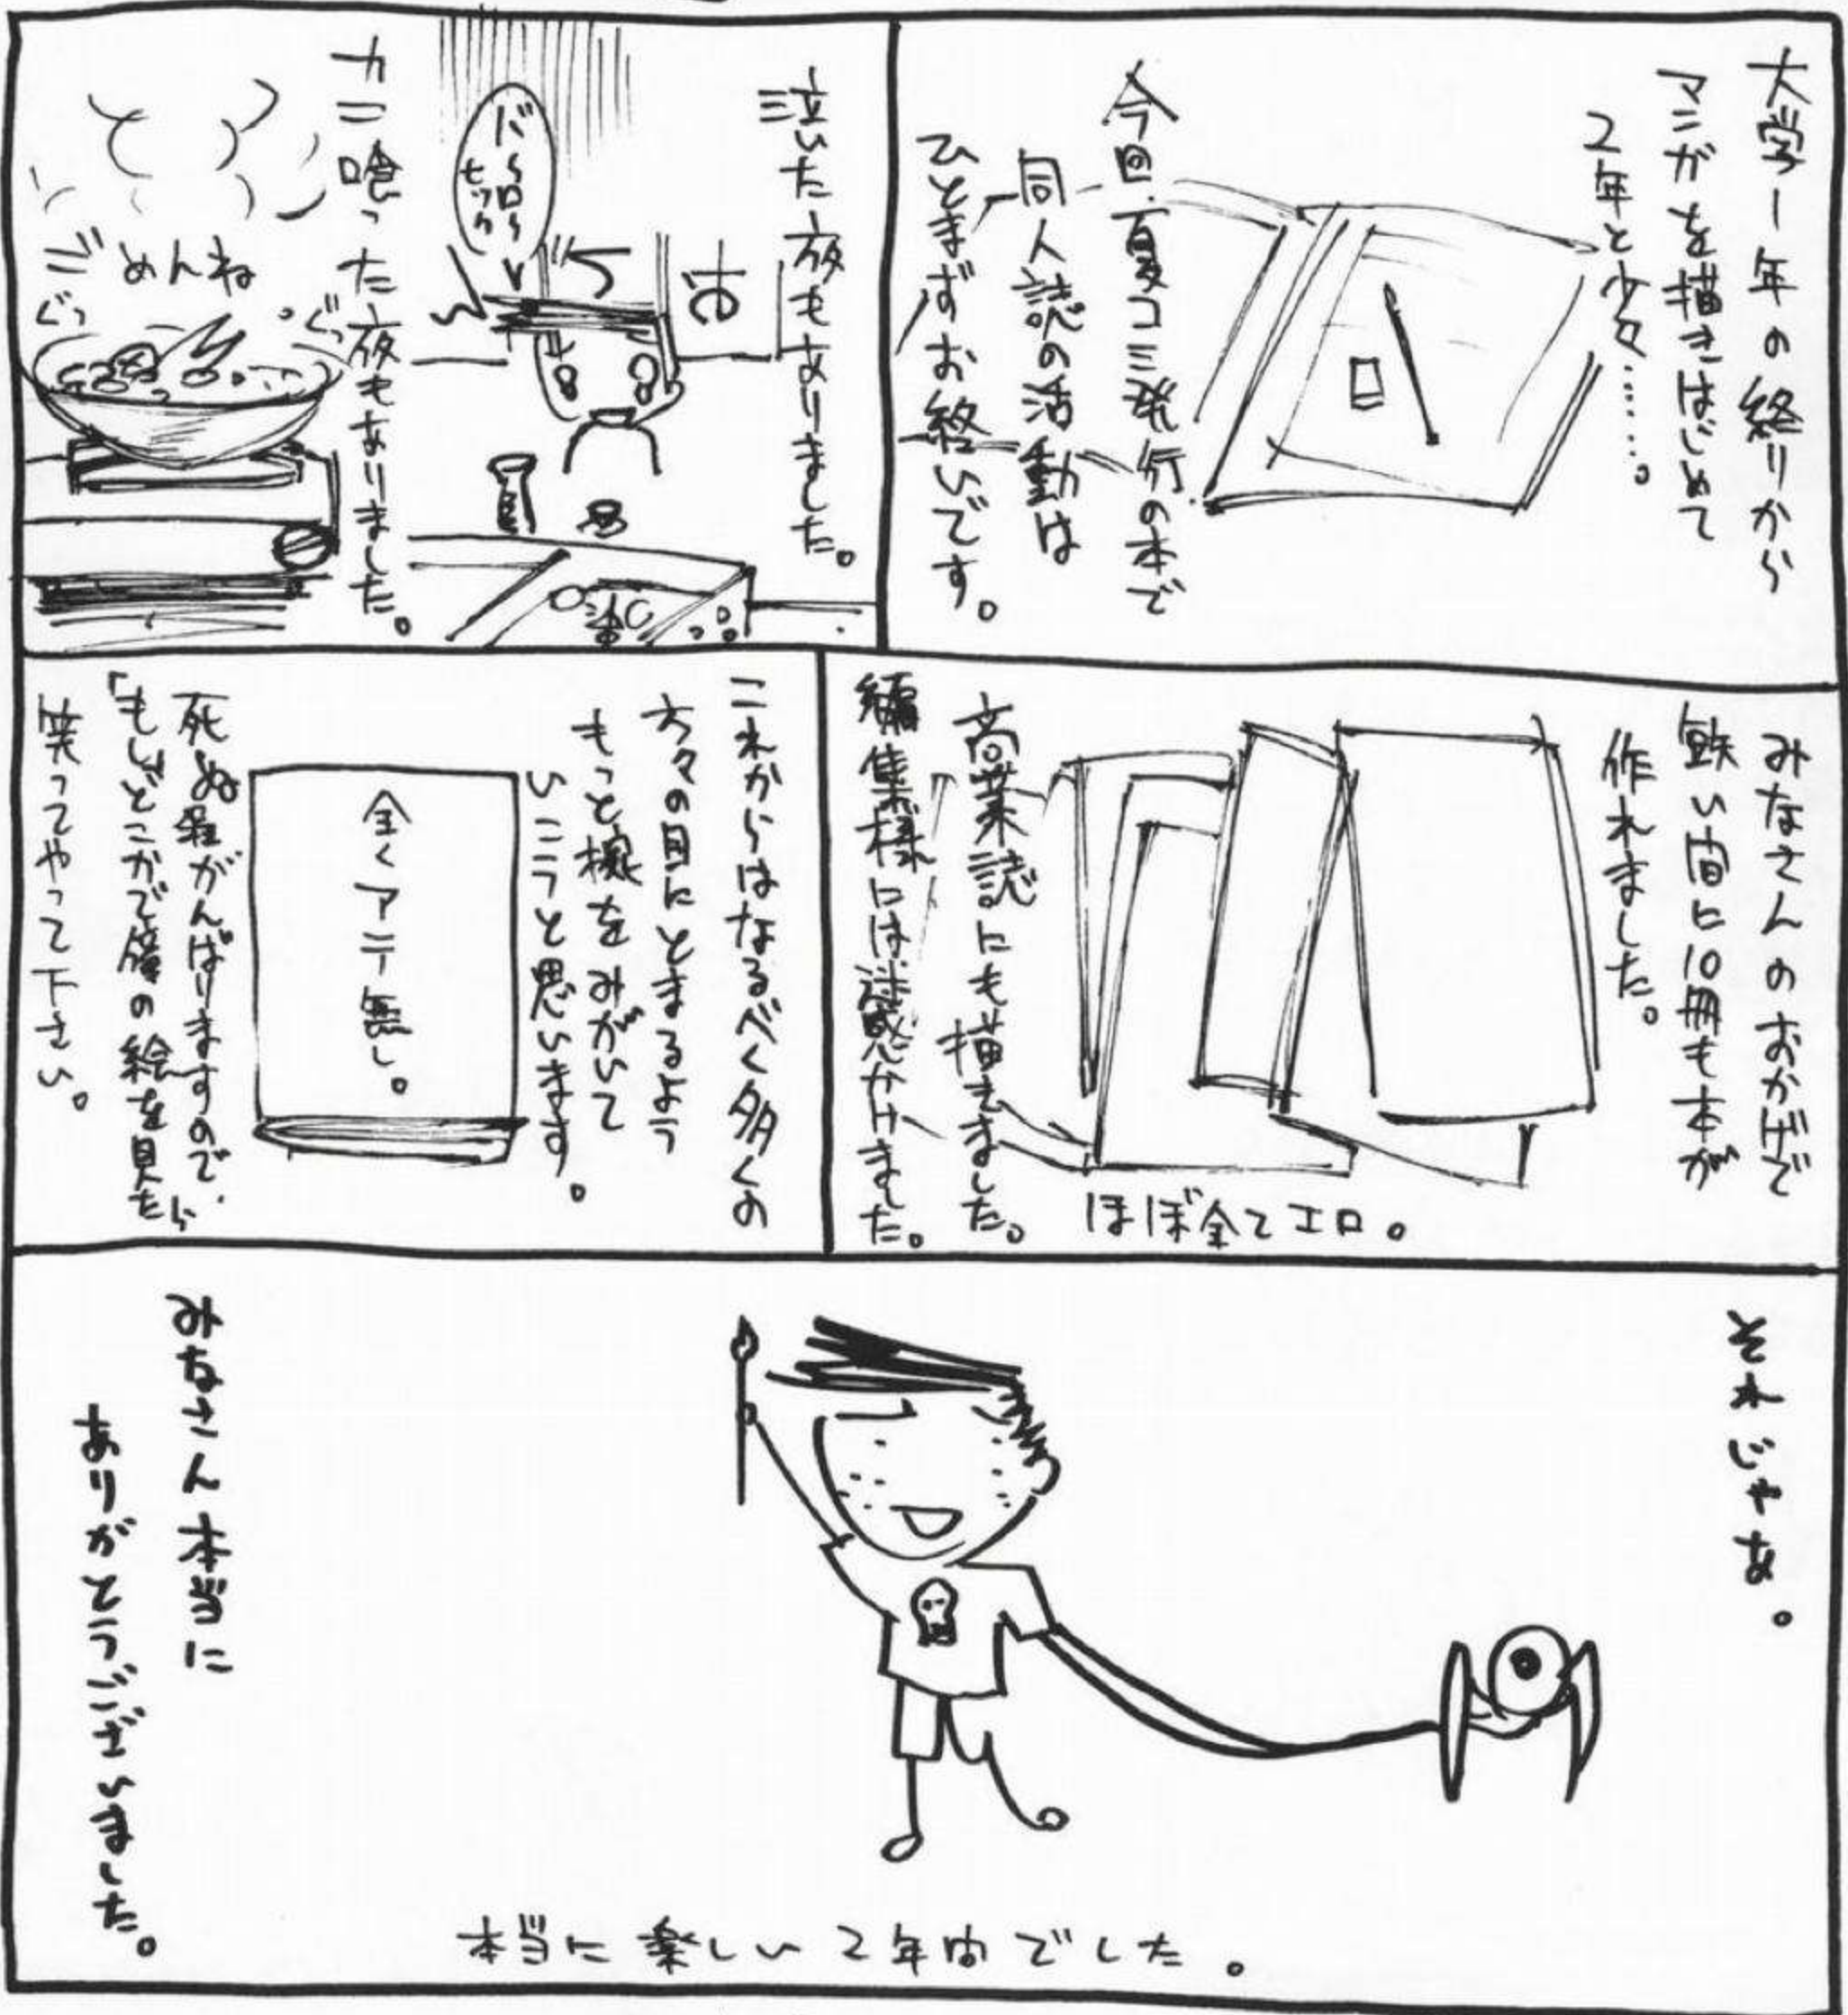 大学1年の終りから
マンガを描きはじめて
2年と少々……。
今回、夏コミ発行の本で
同人誌の活動は
ひとまずお終いです。
泣いた夜もありました。
おでん
バ〜ロ〜
ヒック
カニ喰った夜もありました。
ごめんね
ぐつ
ぐつ
みなさんのおかげで
短い間に10冊も本が
作れました。
ほぼ全てエロ。
商業誌にも描きました。
編集様には迷惑かけました。
これからはなるべく多くの
方々の目にとまるよう
もっと腕をみがいて
いこうと思います。
全くアテ無し。
死ぬ程がんばりますので、
「もしどこかで僕の絵を見たら
笑ってやって下さい。
それじゃあ。
みなさん本当に
ありがとうございました。
本当に楽しい2年間でした。